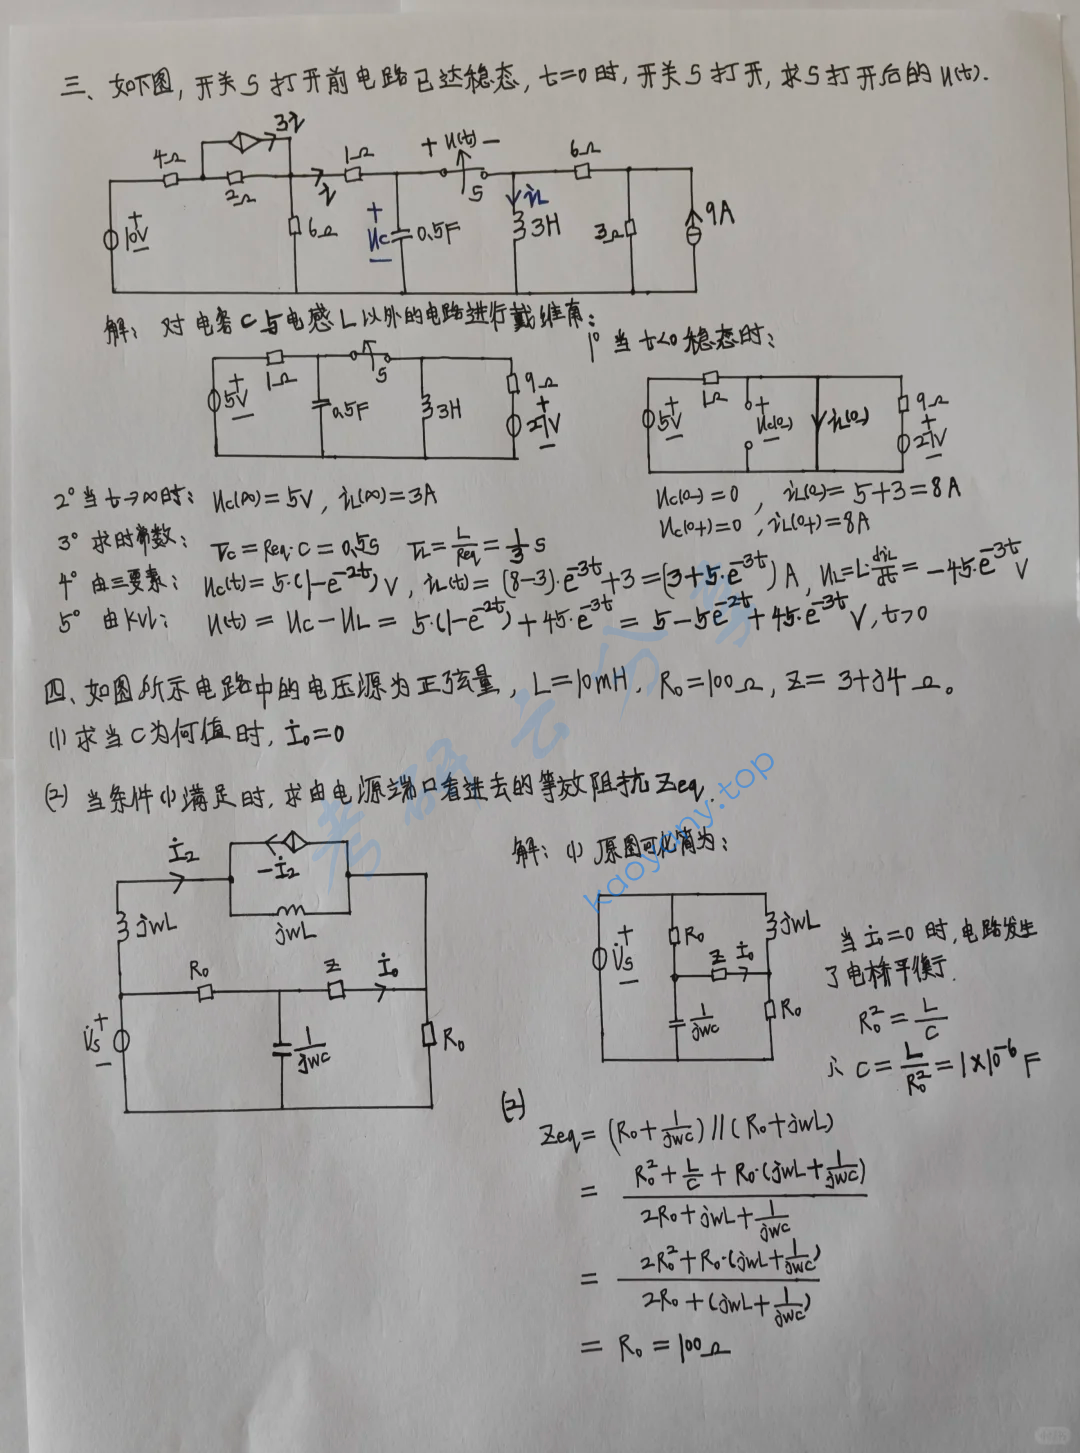 三、如下图，开关S打开前电路已达稳态，t=0时，开关S打开，求S打开后的u(t).
3i
4Ω
2Ω
i
1Ω
+ u(t) −
S
6Ω
+
10V
−
6Ω
+
uc
−
0.5F
iL
3H
3Ω
9A
解：对电容C与电感L以外的电路进行戴维南：
1° 当t<0稳态时：
+
5V
−
1Ω
0.5F
S
3H
9Ω
+
27V
−
+
5V
−
1Ω
+
uc(0-)
−
iL(0-)
9Ω
+
27V
−
uc(0-)=0 , iL(0-)=5+3=8A
uc(0+)=0 , iL(0+)=8A
2° 当t→∞时：uc(∞)=5V , iL(∞)=3A
3° 求时常数：τc=Req·C=0.5s τL=L/Req=1/3 s
4° 由三要素：uc(t)=5·(1-e^{-2t})V , iL(t)=(8-3)·e^{-3t}+3=(3+5·e^{-3t})A , uL=L·diL/dt=-45·e^{-3t}V
5° 由KVL：u(t)=uc-uL=5·(1-e^{-2t})+45·e^{-3t}=5-5e^{-2t}+45·e^{-3t}V, t>0
四、如图所示电路中的电压源为正弦量，L=10mH, R₀=100Ω, Z=3+j4Ω。
(1) 求当C为何值时，İ₀=0
(2) 当条件(1)满足时，求由电源端口看进去的等效阻抗Zeq.
考研云分享
kaoyany.top
İ₂
-İ₂
jwL
jwL
R₀
Z
İ₀
+
V̇s
−
1/jwc
R₀
解：(1) 原图可化简为：
+
V̇s
−
R₀
jwL
Z
İ₀
1/jwc
R₀
当İ₀=0时，电路发生
了电桥平衡.
R₀²=L/C
∴ C=L/R₀²=1×10⁻⁶F
(2)
Zeq=(R₀+1/jwc)//(R₀+jwL)
=(R₀²+L/C+R₀·(jwL+1/jwc))/(2R₀+jwL+1/jwc)
=(2R₀²+R₀·(jwL+1/jwc))/(2R₀+(jwL+1/jwc))
=R₀=100Ω